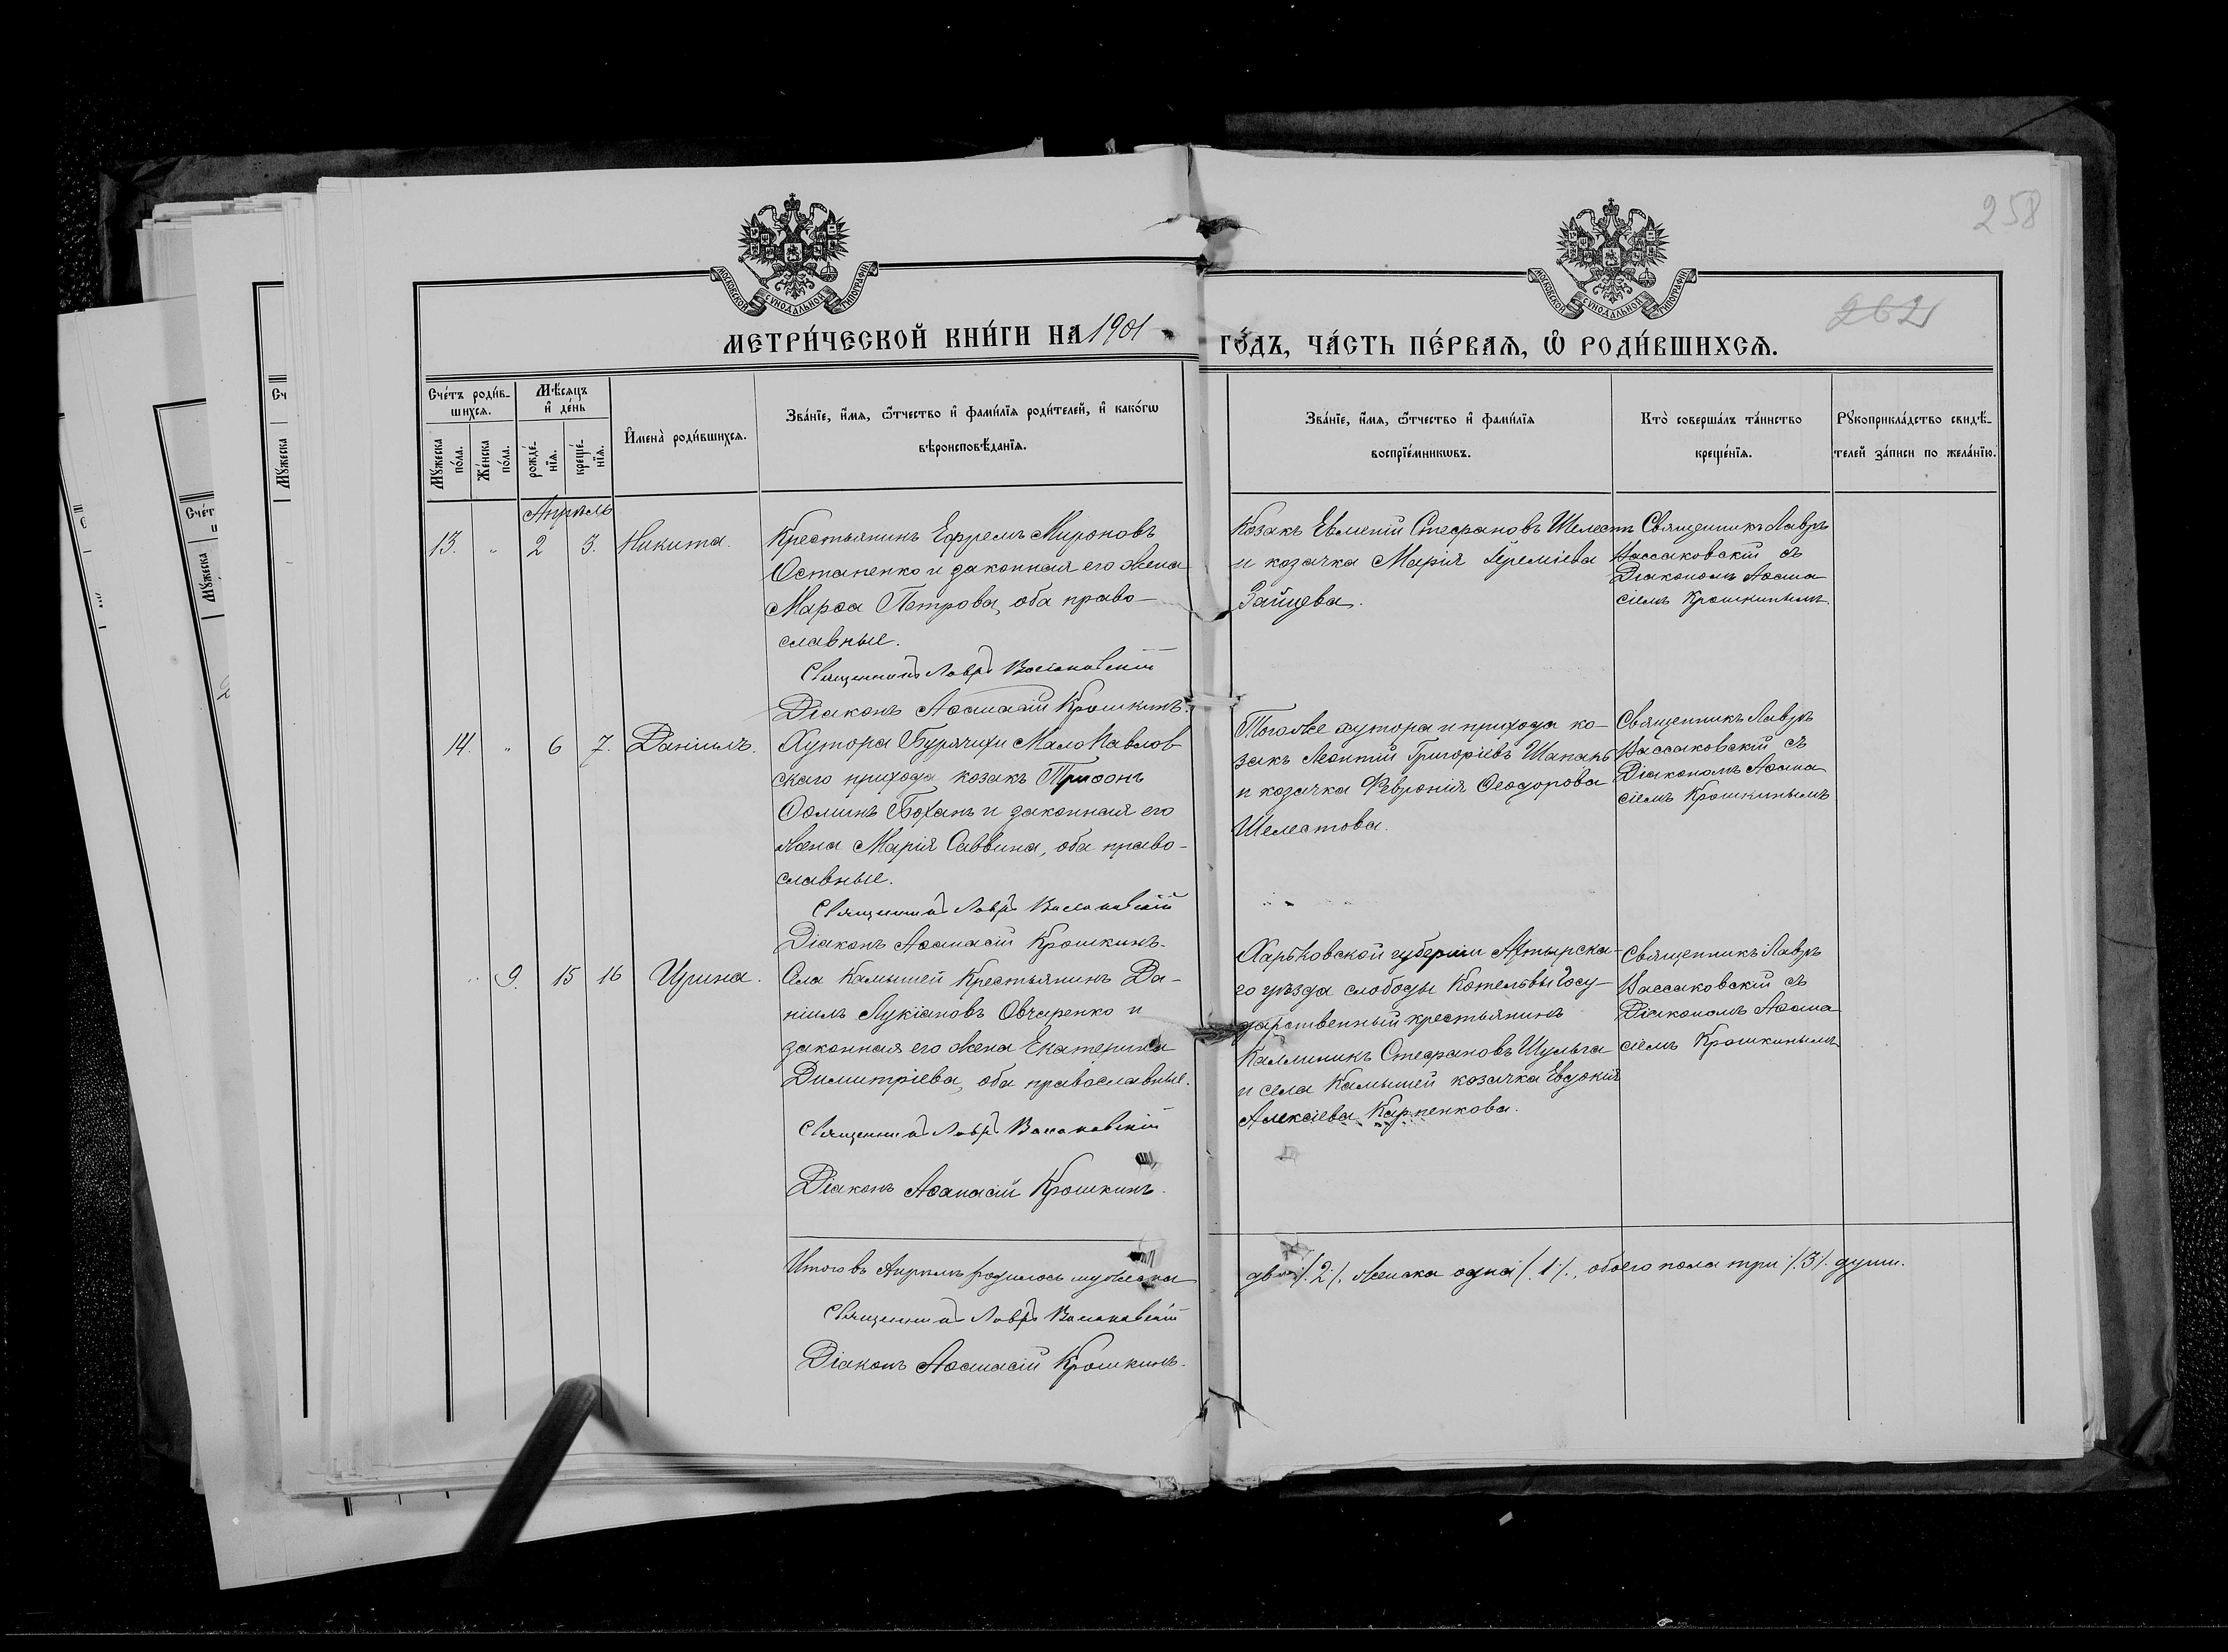 258
262
МЕТРИ́ЧЕСКОЙ КНИ́ГИ НА 1901 ГО́ДЪ, ЧА́СТЬ ПЕ́РВАѦ, Ѽ РОДИ́ВШИХСѦ.
МОСКОВСКОЙ СѴНОДАЛЬНОЙ ТИПОГРАФІИ
МОСКОВСКОЙ СѴНОДАЛЬНОЙ ТИПОГРАФІИ
Сче́тъ роди́в-
шихсѧ.
Мѣ́сѧцъ
и҆ де́нь
Мꙋ́жеска
по́ла.
Же́нска
по́ла.
рожде́-
нїѧ.
креще́-
нїѧ.
И҆мена̀ роди́вшихсѧ.
Зва́нїе, и҆́мѧ, ѻ҆́тчество и҆ фами́лїѧ роди́телей, и҆ како́гѡ
вѣроисповѣ́данїѧ.
Зва́нїе, и҆́мѧ, ѻ҆́тчество и҆ фами́лїѧ
воспрїе́мникѡвъ.
Кто̀ соверша́лъ та́инство
креще́нїѧ.
Рꙋкоприкла́дство свидѣ́-
телей за́писи по жела́нїю.
Апрѣль
13. " 2 3. Никита.
Крестьянинъ Ефремъ Мироновъ
Остапенко и законная его жена
Марѳа Петрова, оба право-
славные.
Священникъ Лавръ Вассаковскій
Діаконъ Аѳанасій Крошкинъ.
Козакъ Евмений Стефановъ Шелестъ
и козачка Марія Іереміева
Зайцева.
Священникъ Лавръ
Вассаковскій съ
Діакономъ Аѳана
сіемъ Крошкинымъ.
14. " 6 7. Даніилъ.
Хутора Бурячихи МалоПавлов
скаго прихода козакъ Трифонъ
Ѳоминъ Боханъ и законная его
жена Марія Саввина, оба право-
славные.
Священникъ Лавръ Вассаковскій
Діаконъ Аѳанасій Крошкинъ.
Тогоже хутора и прихода ко-
закъ Леонтій Григоріевъ Шапаръ
и козачка Февронія Ѳеодорова
Шелестова.
Священникъ Лавръ
Вассаковскій съ
Діакономъ Аѳана
сіемъ Крошкинымъ
" 9. 15 16 Ирина.
Села Камышей Крестьянинъ Да-
ніилъ Лукіановъ Овчаренко и
законная его жена Екатерина
Димитріева, оба православные.
Священникъ Лавръ Вассаковскій
Діаконъ Аѳанасій Крошкинъ.
Харьковской губерніи Ахтырска-
го уѣзда слободы Котельвы Госу-
дарственный крестьянинъ
Каллиникъ Стефановъ Шульга
и села Камышей козачка Евдокія
Алексіева Карпенкова.
Священникъ Лавръ
Вассаковскій съ
Діакономъ Аѳана
сіемъ Крошкинымъ
Итого въ Апрѣлѣ родилось мужеска два /.2./. женска одна /.1./., обоего пола три /.3./. души.
Священникъ Лавръ Вассаковскій
Діаконъ Аѳанасій Крошкинъ.